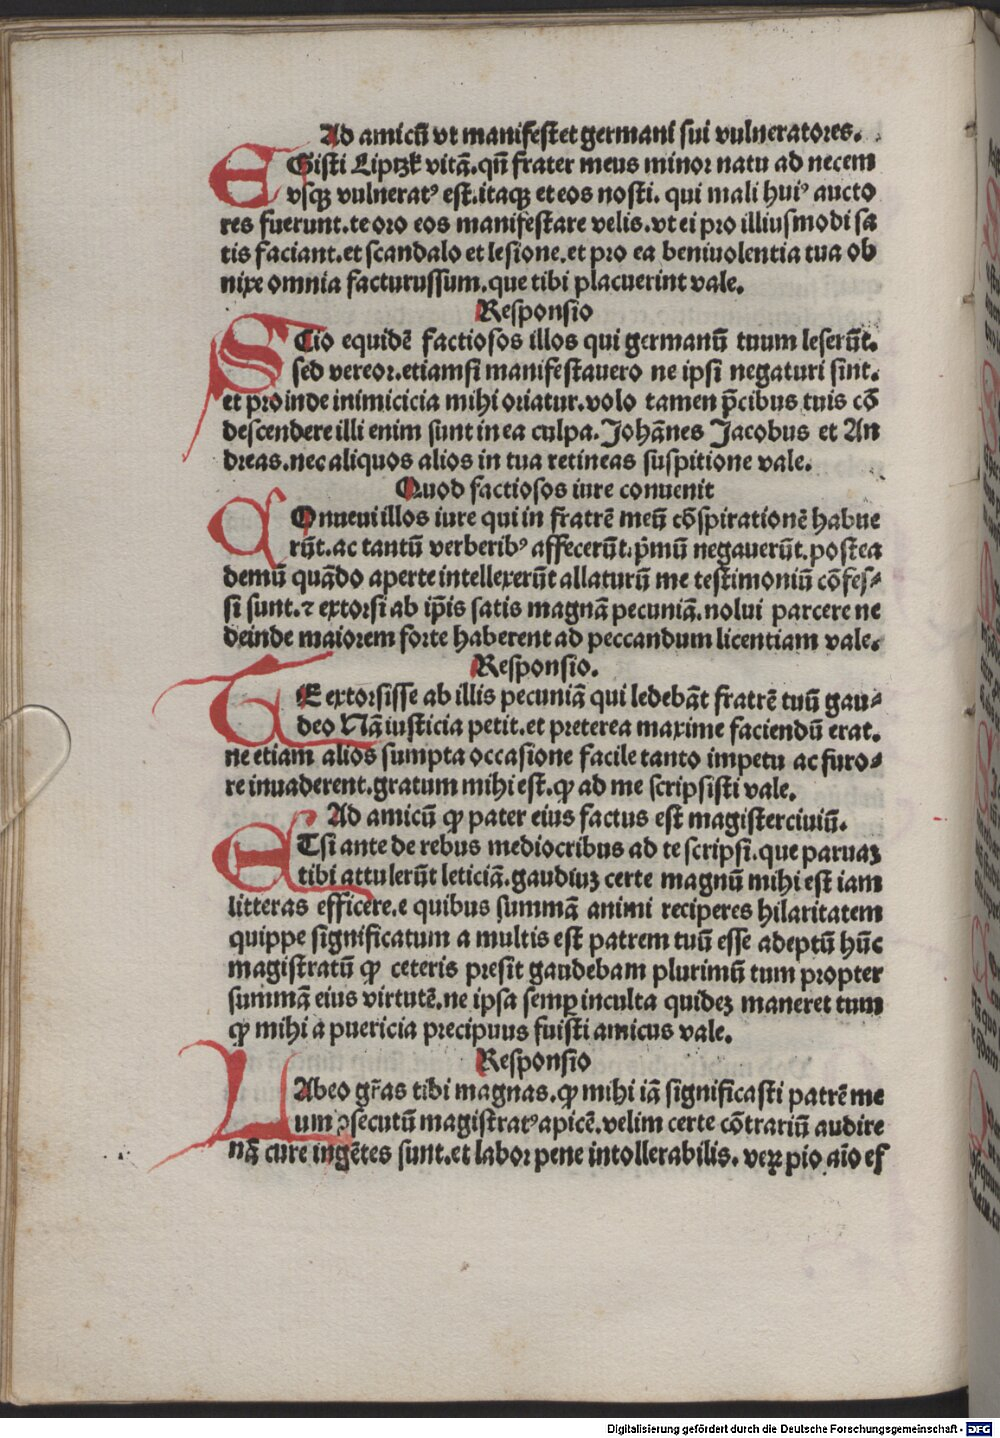 Ad amicū vt manifestet germani sui vulneratores.
EGisti Liptzk vitā. qn̄ frater meus minor natu ad necem
vsqꝫ vulneratꝰ est. itaqꝫ et eos nosti. qui mali huiꝰ aucto
res fuerunt. te oro eos manifestare velis. vt ei pro illiusmodi sa
tis faciant. et scandalo et lesione. et pro ea beniuolentia tua ob
nixe omnia facturussum. que tibi placuerint vale.
Responsio
SCio equidē factiosos illos qui germanū tuum leserūt.
sed vereor. etiamsi manifestauero ne ipsi negaturi sint.
et proinde inimicicia mihi oriatur. volo tamen p̄cibus tuis cō
descendere illi enim sunt in ea culpa. Johānes Jacobus et An
dreas. nec aliquos alios in tua retineas suspitione vale.
Quod factiosos iure conuenit
COnueui illos iure qui in fratrē meū cōspirationē habue
rūt. ac tantū verberibꝰ affecerūt. p̄mū negauerūt. postea
demū quādo aperte intellexerūt allaturū me testimoniū cōfes⸗
si sunt. ⁊ extorsi ab ip̄is satis magnā pecuniā. nolui parcere ne
deinde maiorem forte haberent ad peccandum licentiam vale.
Responsio.
TE extorsisse ab illis pecuniā qui ledebāt fratrē tuū gau⸗
deo Nā iusticia petit. et preterea maxime faciendū erat.
ne etiam alios sumpta occasione facile tanto impetu ac furo⸗
re inuaderent. gratum mihi est. ꝙ ad me scripsisti vale.
Ad amicū ꝙ pater eius factus est magisterciuiū.
ETsi ante de rebus mediocribus ad te scripsi. que paruaꝫ
tibi attulerūt leticiā. gaudiuꝫ certe magnū mihi est iam
litteras efficere. e quibus summā animi reciperes hilaritatem
quippe significatum a multis est patrem tuū esse adeptū hūc
magistratū ꝙ ceteris presit gaudebam plurimū tum propter
summā eius virtutē. ne ipsa semꝑ inculta quideꝫ maneret tum
ꝙ mihi a puericia precipuus fuisti amicus vale.
Responsio
HAbeo gr̄as tibi magnas. ꝙ mihi iā significasti patrē me
um ꝯsecutū magistratꝰ apicē. velim certe cōtrariū audire
nā cure ingētes sunt. et labor pene intollerabilis. veꝝ pio aīo ef
Digitalisierung gefördert durch die Deutsche Forschungsgemeinschaft - DFG